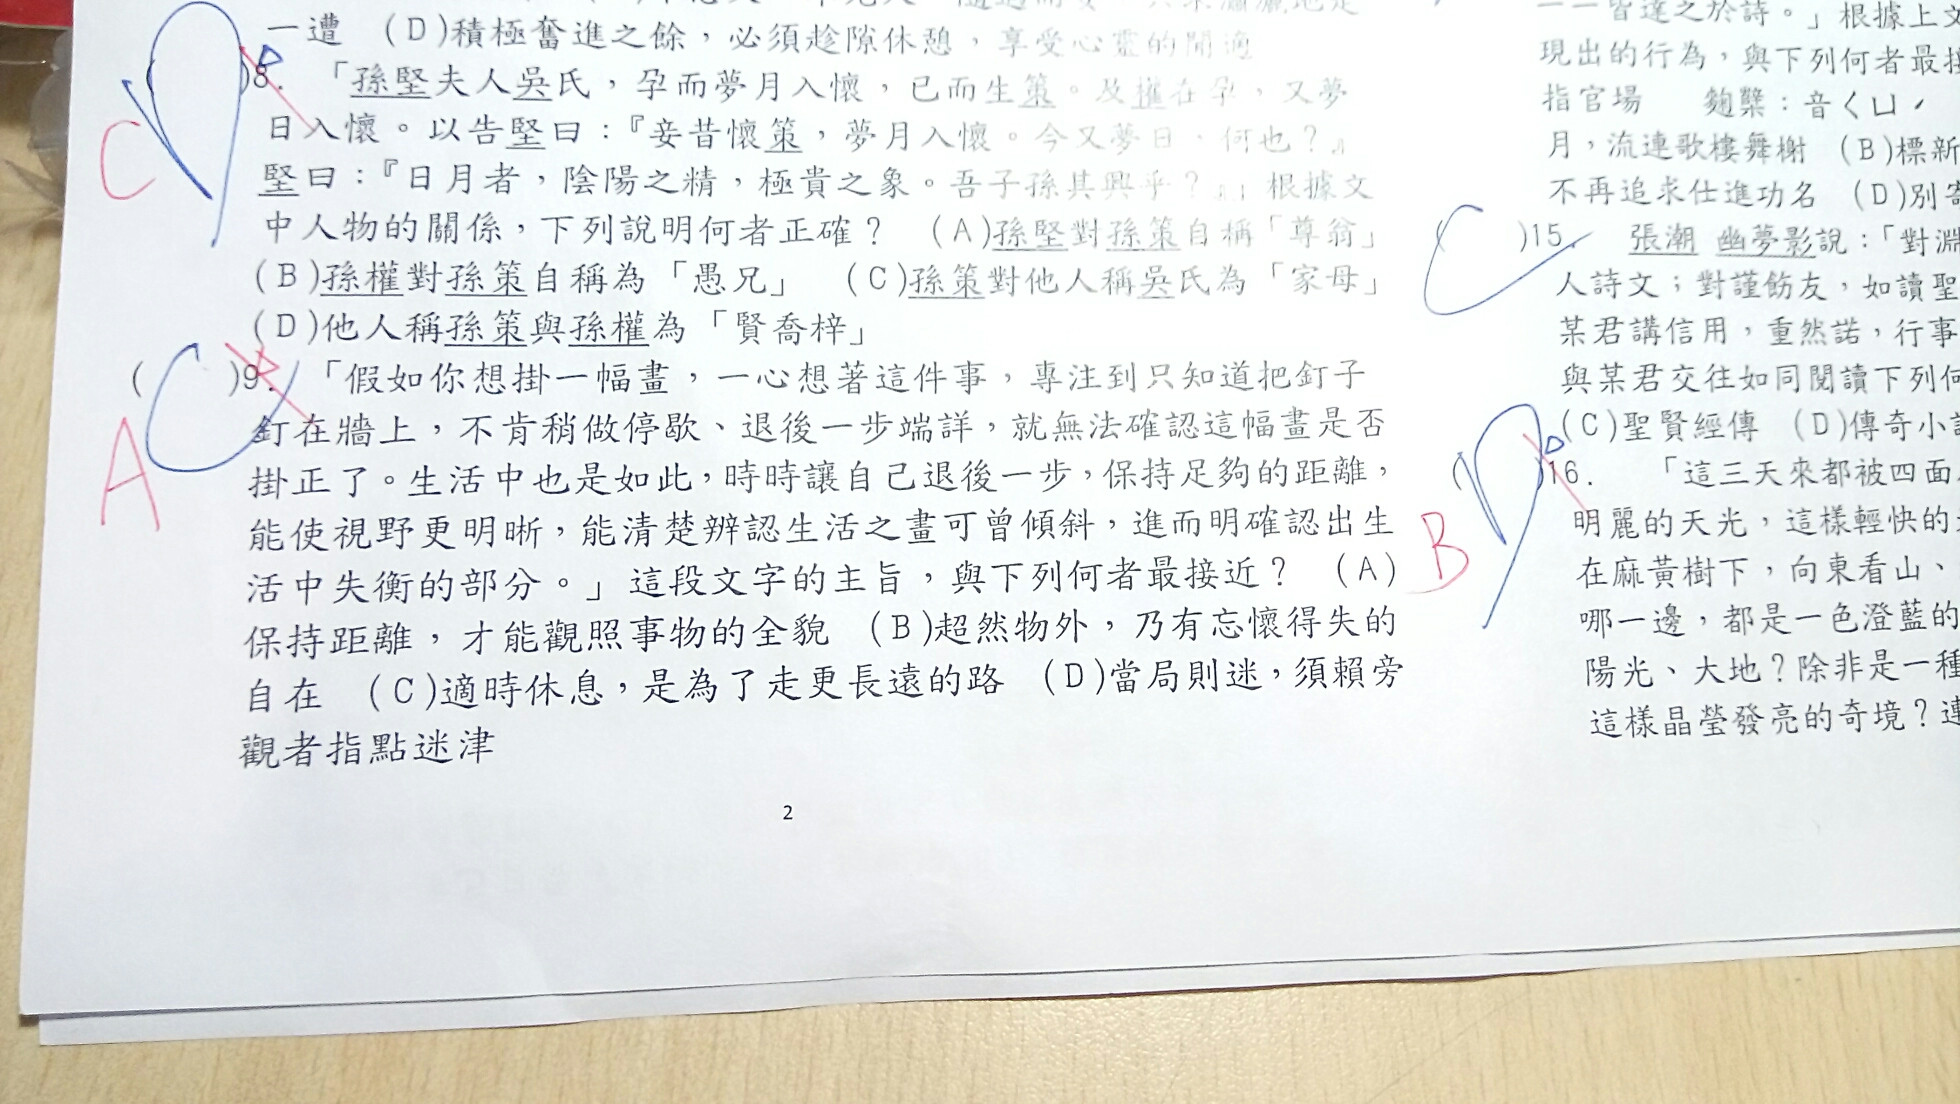 一遭 (D)積極奮進之餘，必須趁隙休憩，享受心靈的閒適
8. 「孫堅夫人吳氏，孕而夢月入懷，已而生策。及權在孕，又夢
日入懷。以告堅曰：『妾昔懷策，夢月入懷。今又夢日，何也？』
堅曰：『日月者，陰陽之精，極貴之象。吾子孫其興乎？』」根據文
中人物的關係，下列說明何者正確？ (A)孫堅對孫策自稱「尊翁」
(B)孫權對孫策自稱為「愚兄」 (C)孫策對他人稱吳氏為「家母」
(D)他人稱孫策與孫權為「賢喬梓」
C
( C )9. 「假如你想掛一幅畫，一心想著這件事，專注到只知道把釘子
釘在牆上，不肯稍做停歇、退後一步端詳，就無法確認這幅畫是否
掛正了。生活中也是如此，時時讓自己退後一步，保持足夠的距離，
能使視野更明晰，能清楚辨認生活之畫可曾傾斜，進而明確認出生
活中失衡的部分。」這段文字的主旨，與下列何者最接近？ (A)
保持距離，才能觀照事物的全貌 (B)超然物外，乃有忘懷得失的
自在 (C)適時休息，是為了走更長遠的路 (D)當局則迷，須賴旁
觀者指點迷津
A
2
一一皆達之於詩。」根據上文
現出的行為，與下列何者最接
指官場 麴櫱：音ㄑㄩˊ
月，流連歌樓舞榭 (B)標新
不再追求仕進功名 (D)別寄
( C )15. 張潮 幽夢影說：「對淵
人詩文；對謹飭友，如讀聖
某君講信用，重然諾，行事
與某君交往如同閱讀下列何
(C)聖賢經傳 (D)傳奇小說
)16. 「這三天來都被四面
明麗的天光，這樣輕快的
在麻黃樹下，向東看山、
哪一邊，都是一色澄藍的
陽光、大地？除非是一種
這樣晶瑩發亮的奇境？連
B